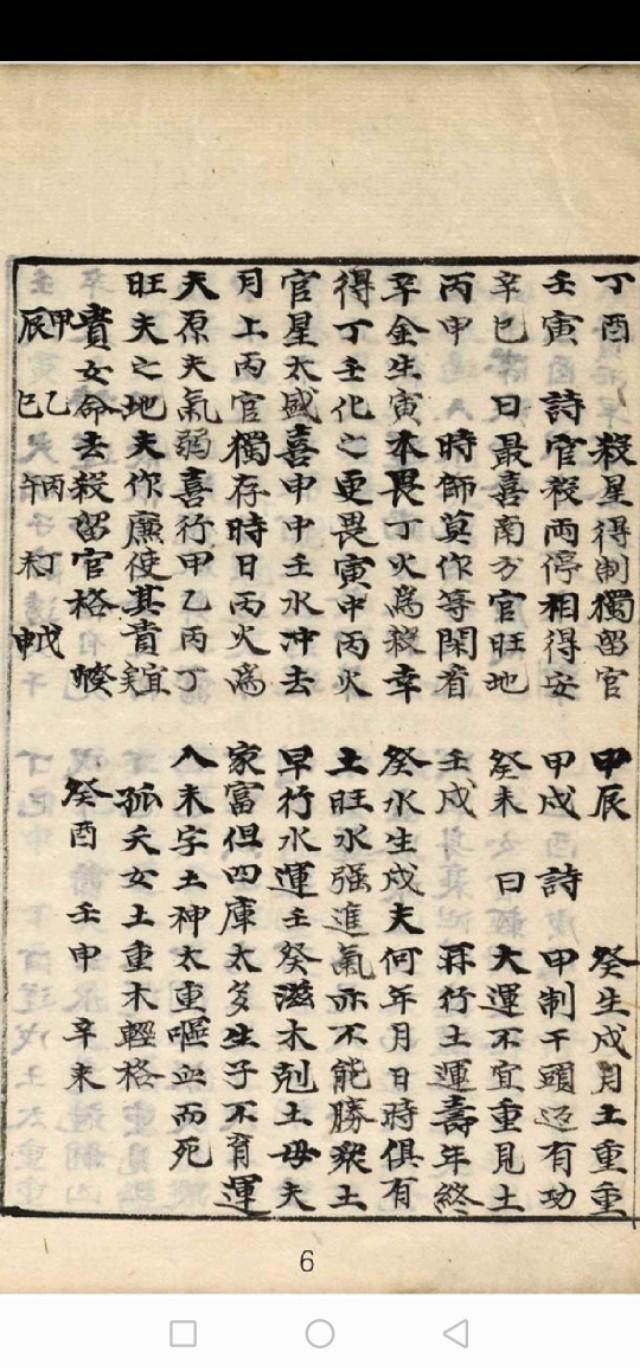 丁酉 殺星得制獨留官
壬寅 詩官殺兩停相得安
辛巳 曰最喜南方官旺地
丙申 時師莫作等閑看
辛金生寅本畏丁火為殺幸
得丁壬化之更畏寅中丙火
官星太盛喜申中壬水冲去
月上丙官獨存時日丙火為
夫原夫氣弱喜行甲乙丙丁
旺夫之地夫作廉使其貴宜
貴女命去殺留官格 癸卯
甲辰 乙巳 丙午 丁未 戊申
甲辰 癸生戌月土重重
甲戌 詩 甲制干頭有功
癸未 曰 大運不宜重見土
壬戌 再行土運壽年終
癸水生戌夫何年月日時俱有
土旺水强進氣亦不能勝衆土
早行水運壬癸滋木剋土毋夫
家富但四庫太多生子不育運
入未字土神太重嘔血而死
孤夭女土重木輕格
癸酉 壬申 辛未
6